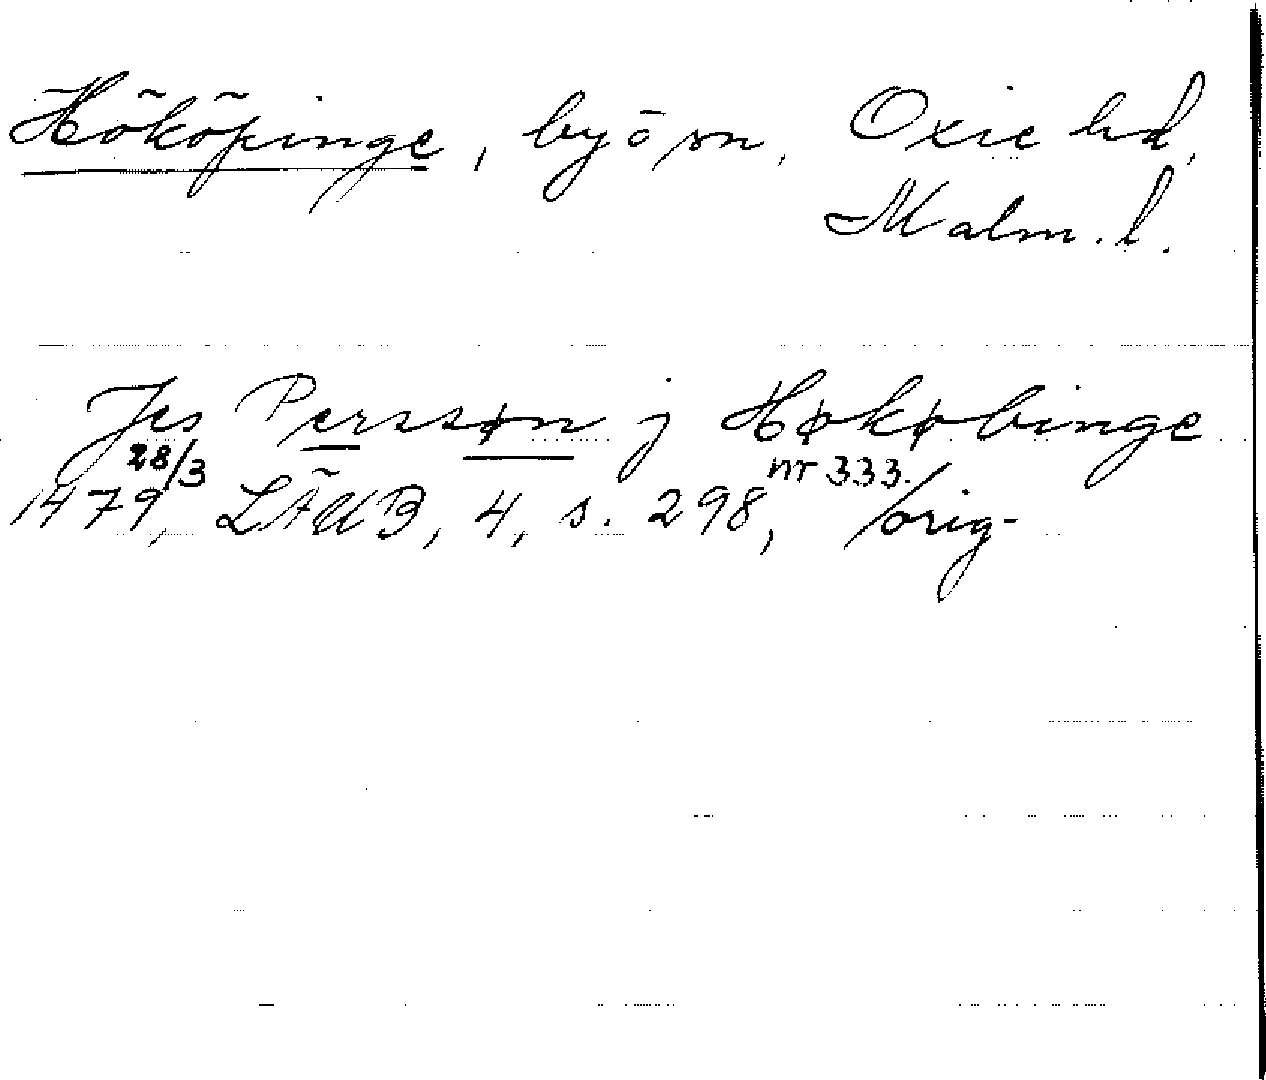 Hököpinge, by ō sn, Oxie hd,
Malm. l.
Jes Perssøn j Høkøbinge
28/3 nr 333.
1479, LÄUB, 4, s. 298, /orig-